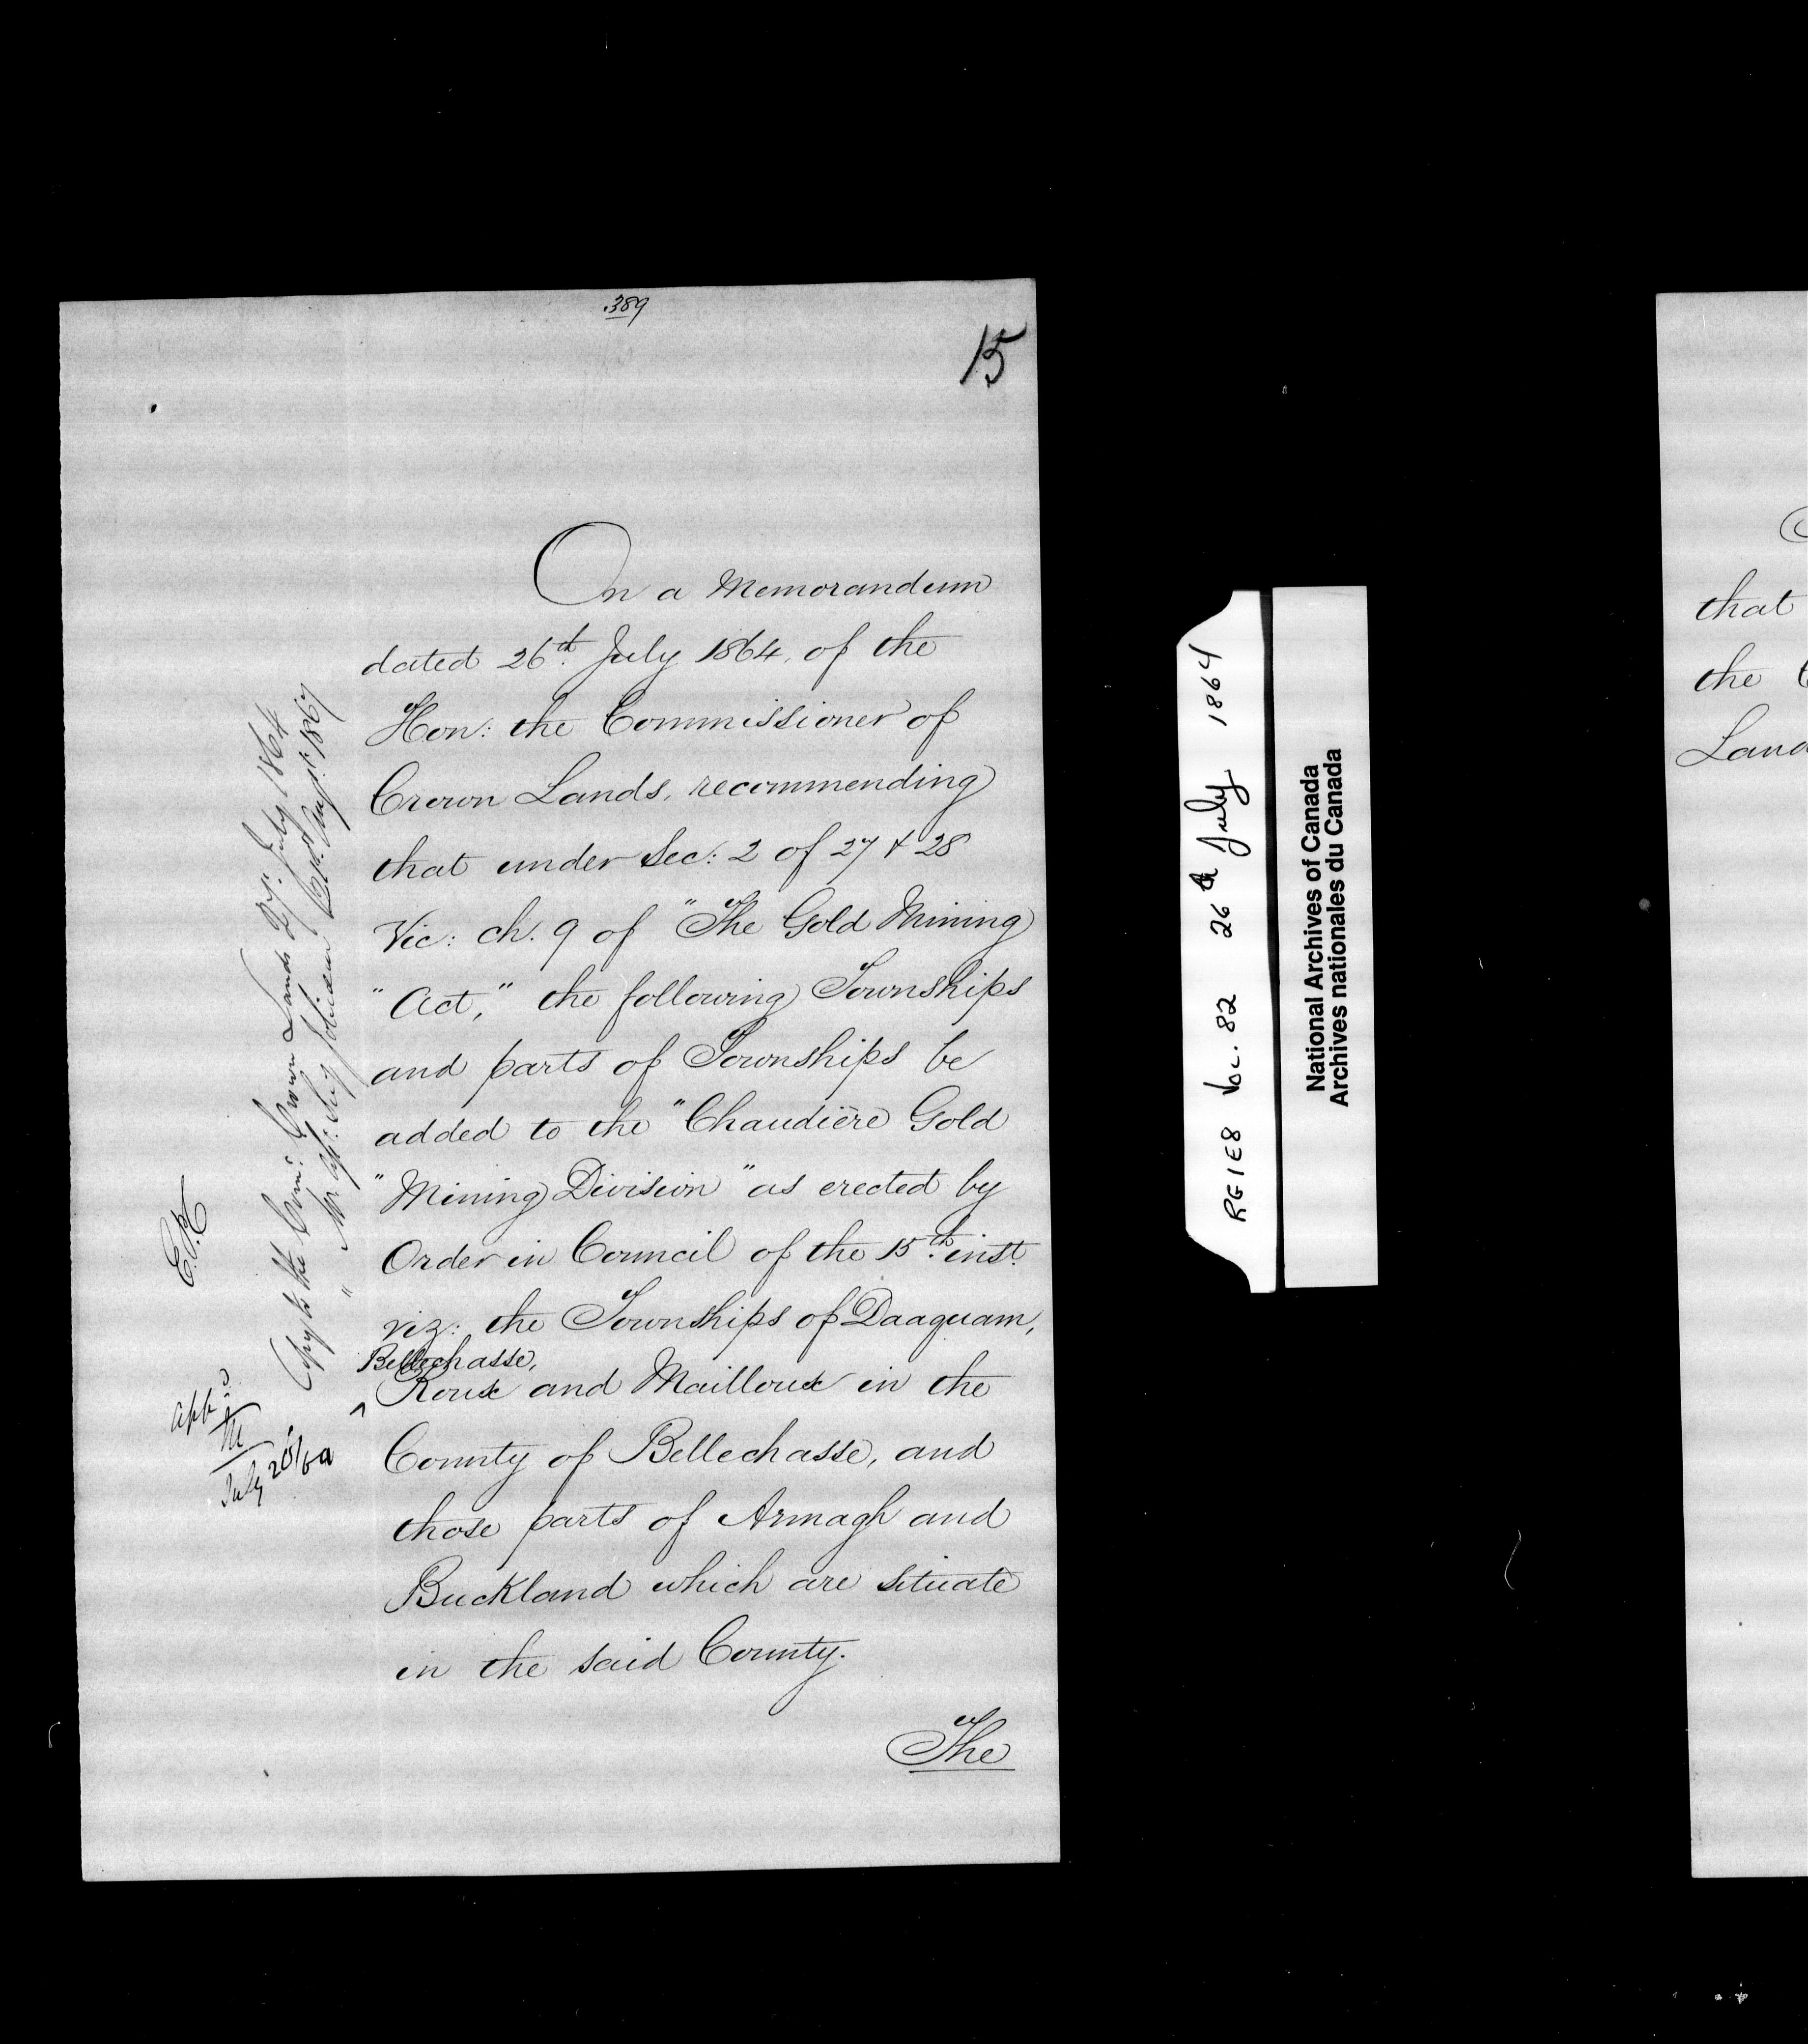 389
15
On a Memorandum
dated 26th. July 1864, of the
Hon: the Commissioner of
Crown Lands, recommending
that under Sec: 2 of 27 & 28
Vic: ch. 9 of "The Gold Mining
"Act," the following Townships
and parts of Townships be
added to the "Chaudière Gold
"Mining Division" as erected by
Order in Council of the 15th. inst.
viz: the Townships of Daaquam,
Bellechasse,
^ Roux and Mailloux in the
County of Bellechasse, and
those parts of Armagh and
Buckland which are situate
in the said County.
The
Copy to the Comr. Crown Lands 27. July 1864
" Mr.
Augt. 1867
Appd
M
July 26/64
RG1E8 Vol. 82 26th July 1864
National Archives of Canada
Archives nationales du Canada
that
the
Land